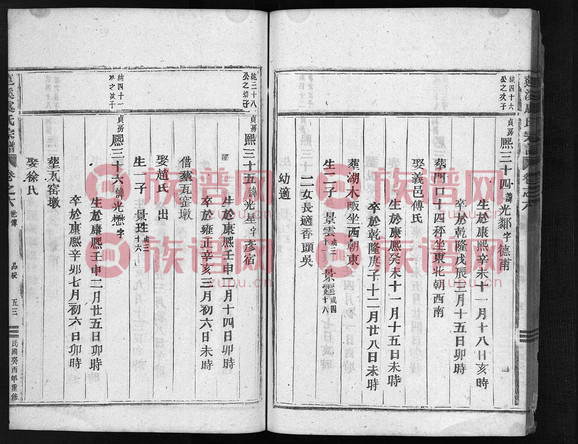 卷之六
純四十六
公之次子
貞房
熙三十四 諱光鄰 字德甫
生於康熙辛未十一月十八日亥時
卒於乾隆戊辰三月初六日
葬門口十四秤坐東北朝西南
娶義邑傅氏
生於康熙癸未十一月十五日未時
卒於乾隆庚子十二月廿八日未時
葬湖木畈坐西朝東
生二子 景雲 景霆
二女長適香頭吳
幼適
純三十八
公之幼子
貞房
熙三十五 諱光星 字彥宿
生於康熙壬申二月十四日卯時
卒於雍正辛亥三月初六日未時
借葬瓦窑墩
娶趙氏 出
生一子 景珄
純四十一
公之次子
貞房
熙三十六 諱光
生於康熙壬申二月廿五日卯時
卒於康熙辛卯七月初六日卯時
葬瓦窑墩
娶徐氏
氏宗譜
卷之六
五三
民國癸酉年重修
族谱网